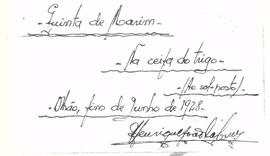 Quinta de Marim -
- Na ceifa do trigo -
- (Ao sol-posto) -
- Olhão, fins de Junho de 1928 -